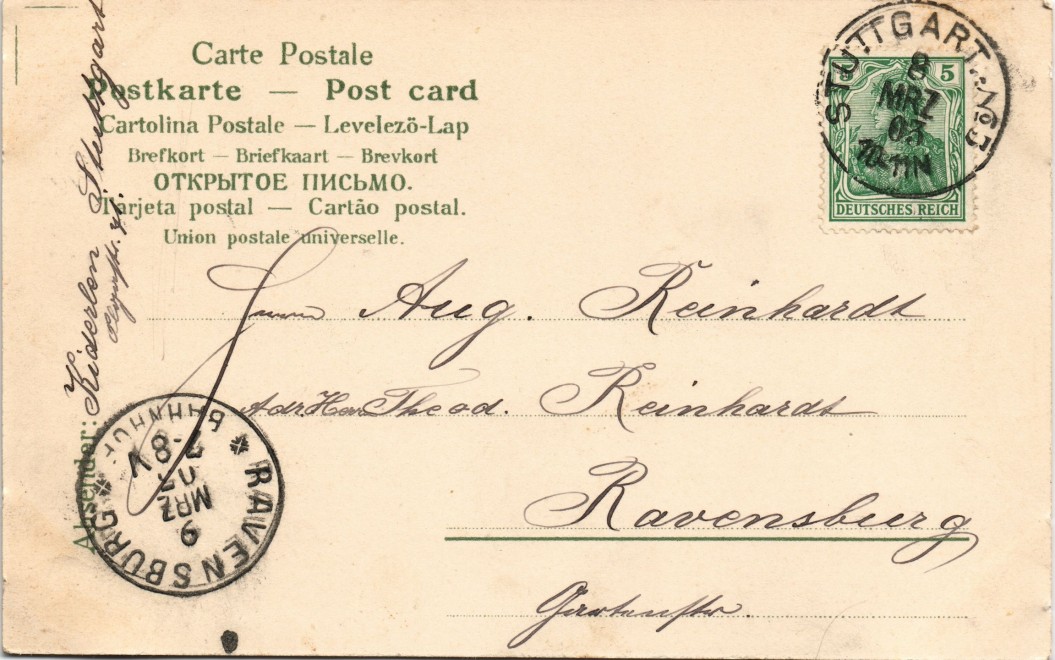 Carte Postale
Postkarte — Post card
Cartolina Postale — Levelezö-Lap
Brefkort — Briefkaart — Brevkort
ОТКРЫТОЕ ПИСЬМО.
Tarjeta postal — Cartão postal.
Union postale universelle.
STUTTGART. No 5
8
MRZ
10-11N
5
DEUTSCHES REICH
Aug. Reinhardt
Adr. Herr Theod. Reinhardt
Ravensburg
Gartenstr.
Absender: Kiderlen Stuttgart
RAVENSBURG
BAHNHOF
9
MRZ
7-8V